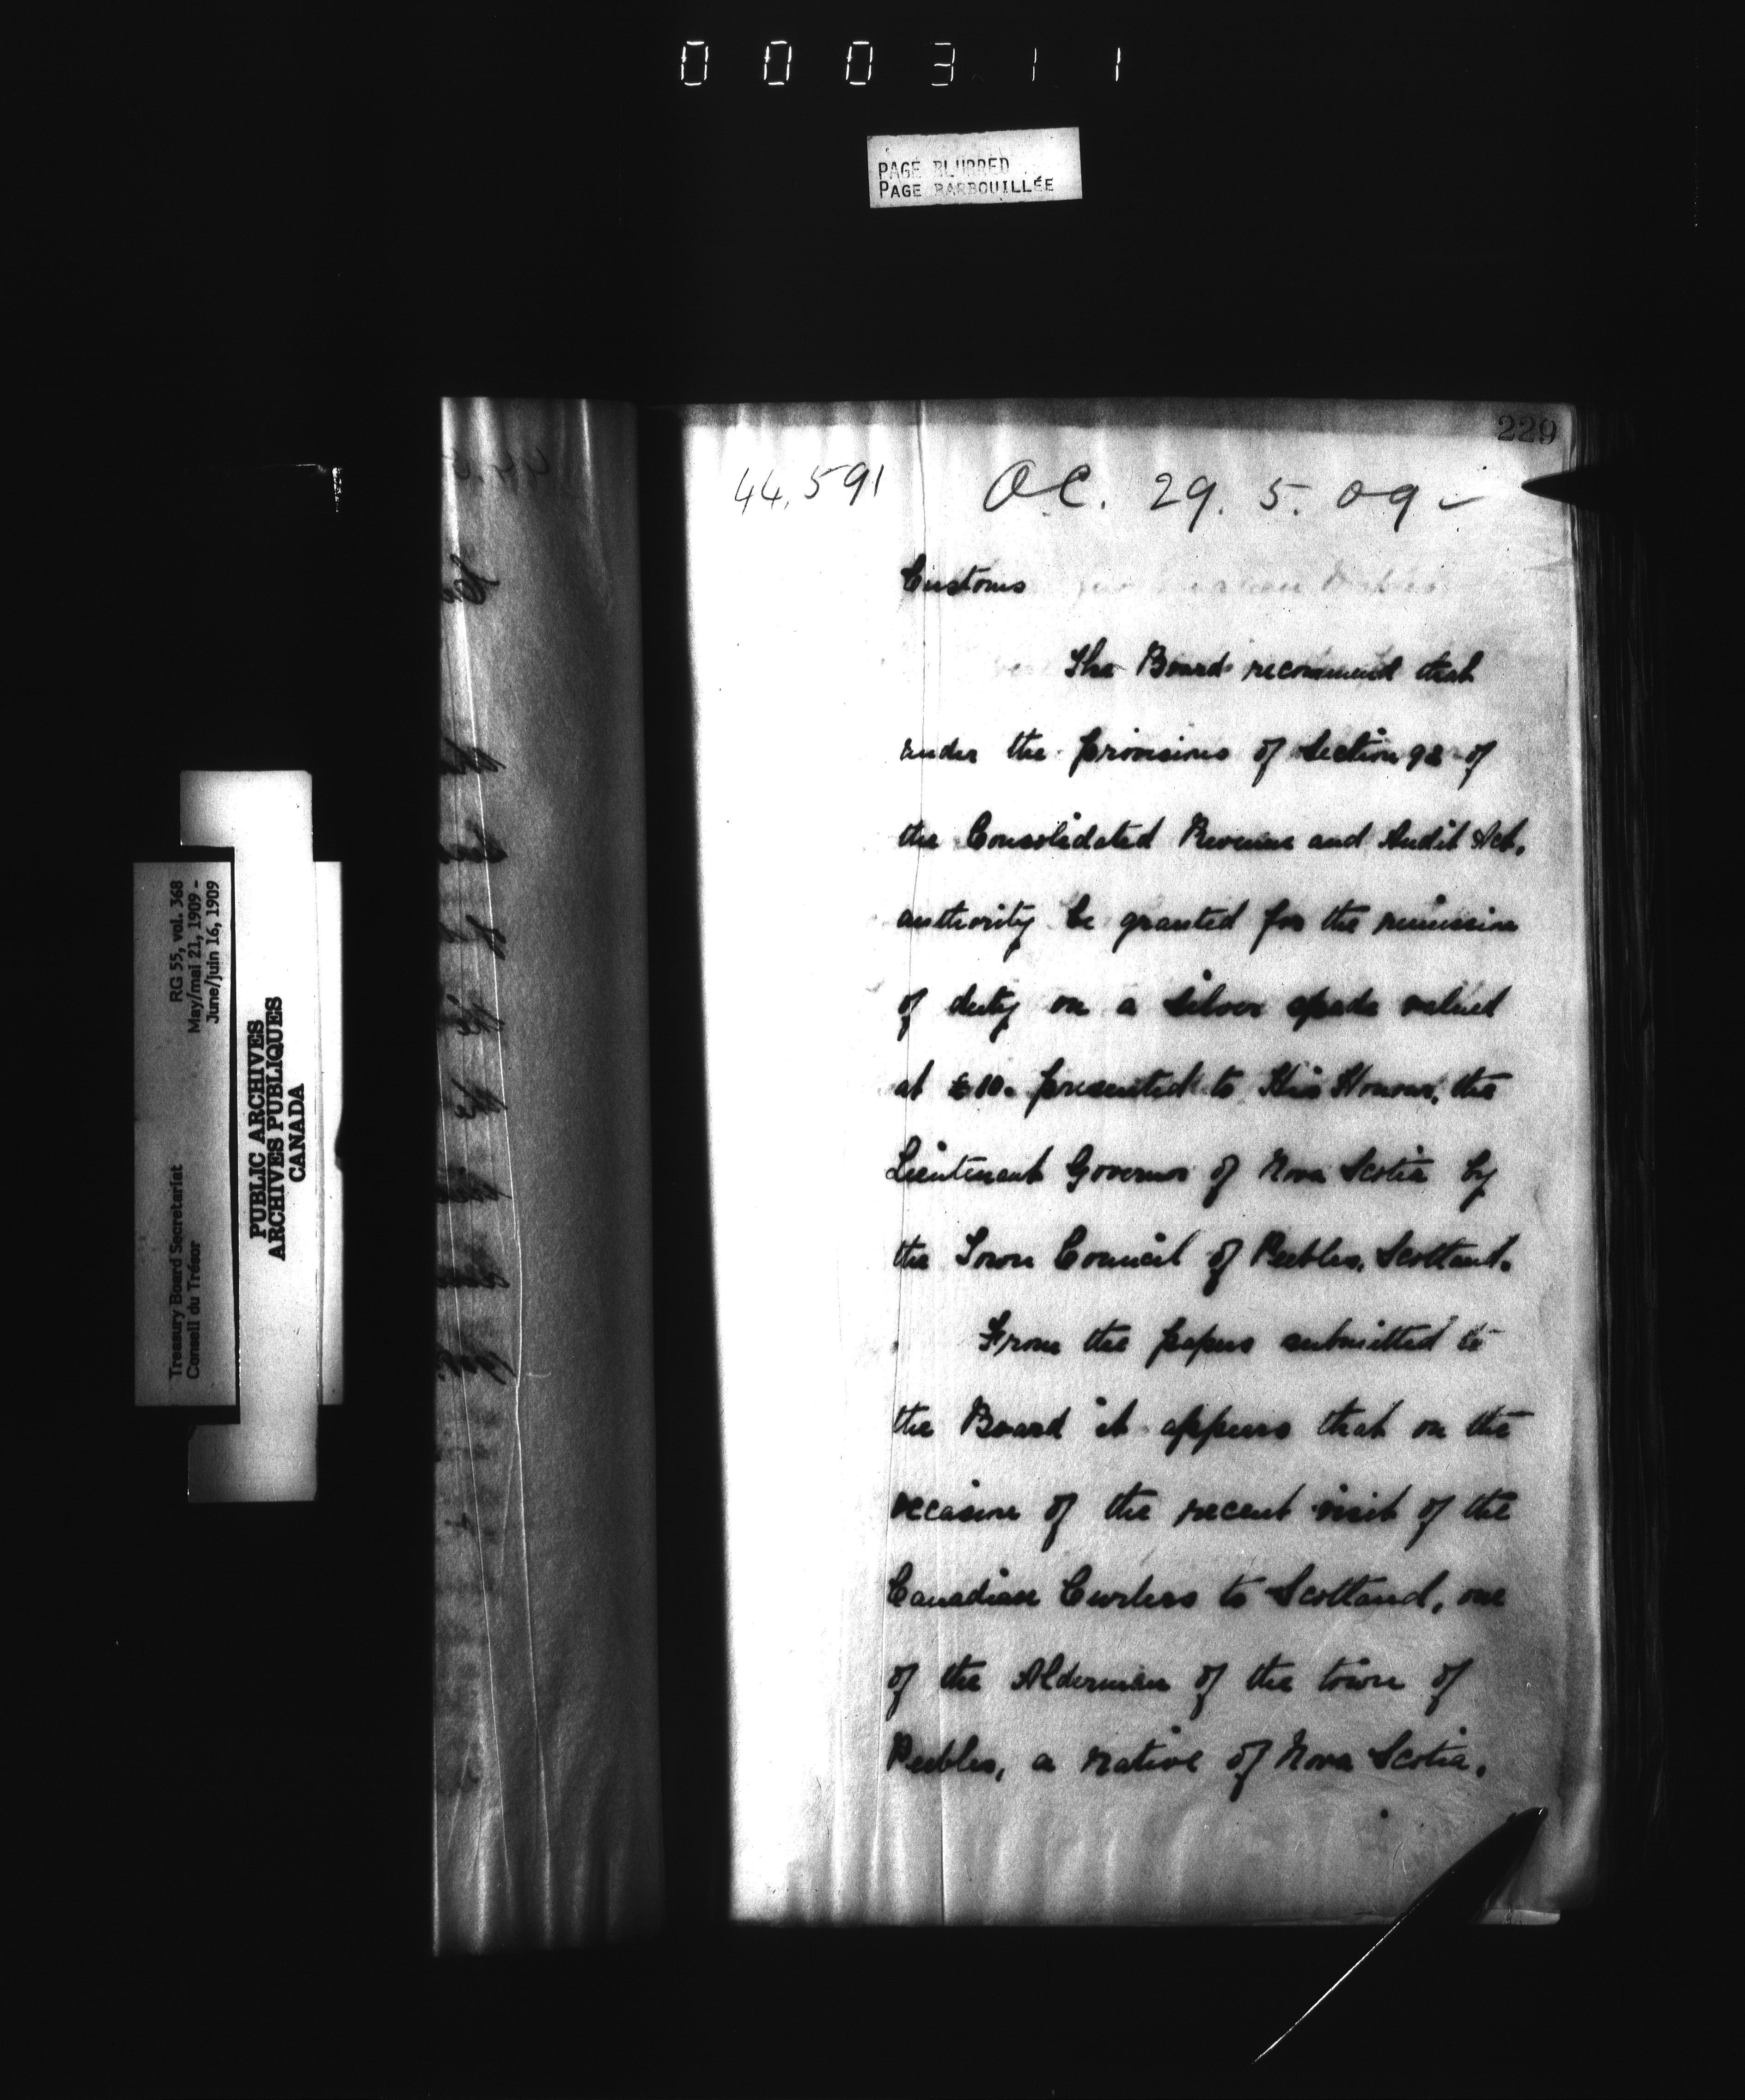 000311
PAGE BLURRED
PAGE BARBOUILLÉE
229
44,591 O.C. 29.5.09
Customs
The Board recommend that
under the provisions of Section 92 of
the Consolidated Revenue and Audit Act,
authority be granted for the remission
of duty on a silver spade valued
at £10. presented to His Honour, the
Lieutenant Governor of Nova Scotia by
the Town Council of Peebles, Scotland.
From the papers submitted to
the Board it appears that on the
occasion of the recent visit of the
Canadian Curlers to Scotland, one
of the Alderman of the town of
Peebles, a native of Nova Scotia,
Treasury Board Secretariat
Conseil du Trésor
RG 55, vol. 368
May/mai 21, 1909 -
June/juin 16, 1909
PUBLIC ARCHIVES
ARCHIVES PUBLIQUES
CANADA